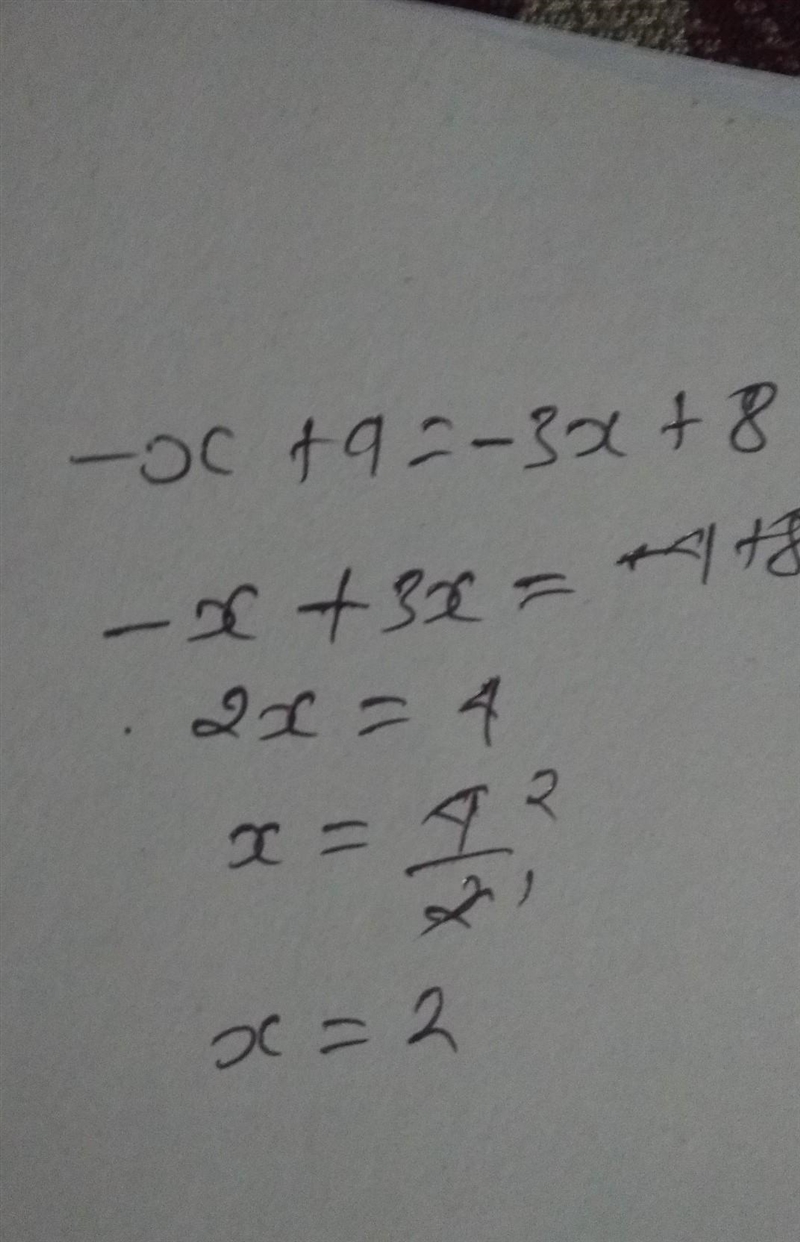 -x + 4 = -3x + 8
-x + 3x = -4 + 8
2x = 4
x = 4 2
2 1
x = 2